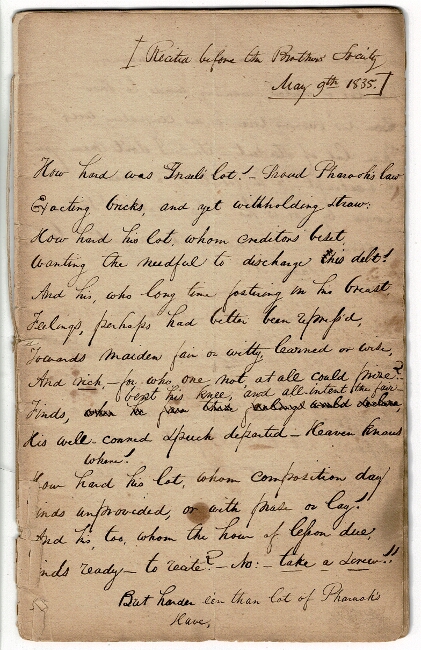 [Recited before the Brothers Society
May 9th 1835.]
How hard was Israels lot! – Proud Pharaoh's law
Exacting bricks, and yet withholding straw:
How hard his lot, whom creditors beset
Wanting the needful to discharge this debt!
And his, who long time fostering in his breast
Feelings, perhaps had better been repress'd,
Towards maiden fair or witty, learned or wise,
And rich – for who one not, at all could prize?
bent his knee, and all intent the fair
Finds, when he
His well-conned speech departed – Heaven knows
where!
How hard his lot, whom composition day
Finds unprovided, or with prose or lay!
And his, too, whom the hour of lesson due,
Finds ready – to recite? – No: – take a screw!!
But harder e'en than lot of Pharaoh's
Slave,